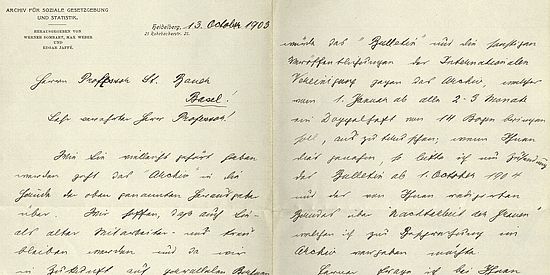 ARCHIV FÜR SOZIALE GESETZGEBUNG
UND STATISTIK.
HERAUSGEGEBEN VON
WERNER SOMBART, MAX WEBER
UND
EDGAR JAFFÉ.
Heidelberg, 13. October 1903
21 Rohrbacherstr. 21.
Herrn Professor St. Bauer
Basel!
Sehr verehrter Herr Professor!
Wie Sie vielleicht gehört haben
werden geht das "Archiv" in die
Hände der oben genannten Herausgeber
über. Wir hoffen, dass auch Sie
als alter Mitarbeiter uns treu
bleiben werden und da wir
in Zukunft auch
würde das "Bulletin" und die sonstigen
Veröffentlichungen der Internationalen
Vereinigung gegen das Archiv, welches
vom 1. Januar ab alle 2-3 Monate
ein Doppelheft von 14 Bogen bringen
soll, auszutauschen; wenn Ihnen
dies genehm, so bitte ich um Zusendung
des Bulletin ab 1. October 1904
und der von Ihnen
Bandes über "Nachtarbeit der Frauen"
welchen ich zur Besprechung im
Archiv vergeben möchte.
Ferner frage ich bei Ihnen